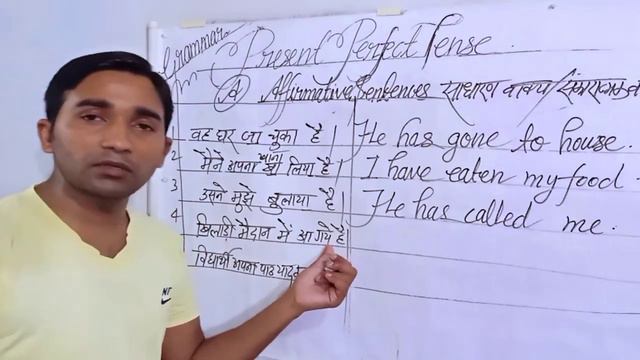 Grammar
Present Perfect Tense
(A) Affirmative Sentences साधारण वाक्य/
1 वह घर जा चुका है। He has gone to house.
2 मैंने अपना खाना खा लिया है। I have eaten my food.
3 उसने मुझे बुलाया है। He has called me.
4 खिलाड़ी मैदान में आ गये हैं
विद्यार्थी अपना पाठ याद